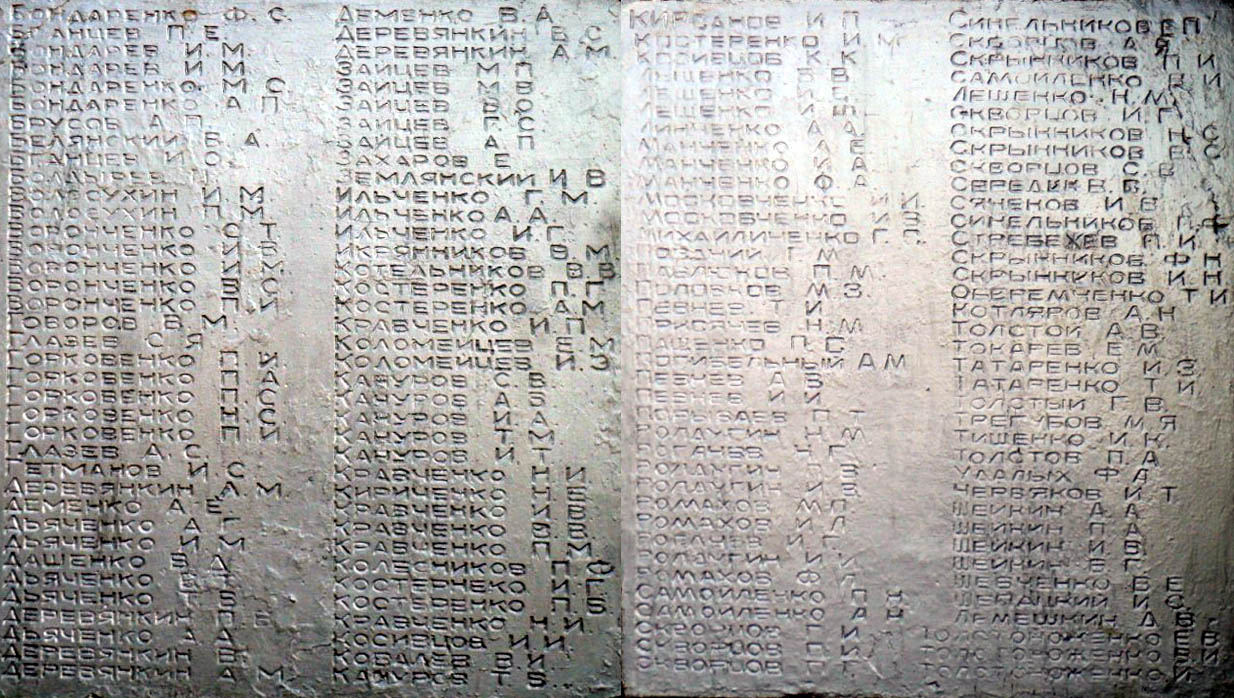 БОНДАРЕНКО Ф. С.
БРАНЦЕВ П. Е.
БОНДАРЕВ И. М.
БОНДАРЕВ И М
БОНДАРЕНКО. М. С.
БОНДАРЕНКО А П
БРУСОВ А П
БЕЛЯНСКИЙ В. А.
БРАНЦЕВ И О
БОЛДЫРЕВ
ВОЛОСУХИН И. М
ВОЛОСУХИН П М
ВОРОНЧЕНКО С Т
ВОРОНЧЕНКО И В
ВОРОНЧЕНКО
ВОРОНЧЕНКО
ВОРОНЧЕНКО П. И
ГОВОРОВ В. М.
ГЛАЗЕВ С Я
ГОРКОВЕНКО П И
ГОРКОВЕНКО П А
ГОРКОВЕНКО П С
ГОРКОВЕНКО Н С
ГОРКОВЕНКО П И
ГЛАЗЕВ А. С.
ГЕТМАНОВ И. С.
ДЕРЕВЯНКИН А. М.
ДЕМЕНКО А Е
ДЬЯЧЕНКО А Г
ДЬЯЧЕНКО И. М
ДАЦЕНКО В Д
ДЬЯЧЕНКО Е Т
ДЬЯЧЕНКО Г Б
ДЕРЕВЯНКИН П. В
ДЬЯЧЕНКО А Д
ДЕРЕВЯНКИН А В
ДЕРЕВЯНКИН А М.
ДЕМЕНКО В. А
ДЕРЕВЯНКИН В. С
ДЕРЕВЯНКИН А. М.
ЗАЙЦЕВ М П
ЗАЙЦЕВ М В
ЗАЙЦЕВ В О
ЗАЙЦЕВ Г. С
ЗАЙЦЕВ А П
ЗАХАРОВ Е
ЗЕМЛЯНСКИЙ И В
ИЛЬЧЕНКО Г. М.
ИЛЬЧЕНКО А А.
ИЛЬЧЕНКО И. Г.
ИКРЯННИКОВ В. М
КОТЕЛЬНИКОВ В. В
КОСТЕРЕНКО П. Г
КОСТЕРЕНКО А. М
КРАВЧЕНКО И П
КОЛОМЕЙЦЕВ Е. М
КОЛОМЕЙЦЕВ И. З
КАЧУРОВ С В
КАЧУРОВ А Б
КАЧУРОВ И А
КАЧУРОВ Т М
КАЧУРОВ И Т
КРАВЧЕНКО Н И
КИРИЧЕНКО Н Е
КРАВЧЕНКО И В
КРАВЧЕНКО В В
КРАВЧЕНКО П М
КОЛЕСНИКОВ П. Ф
КОСТЕРЧЕНКО И Г
КОСТЕРЕНКО П. Б
КРАВЧЕНКО Н И.
КОСИВЦОВ И. И.
КОВАЛЕВ В И
КАЧУРОВ Т Б.
КИРСАНОВ И П
КОСТЕРЕНКО И М
КОСИВЦОВ К К
ЛЫЩЕНКО В В
ЛЕЩЕНКО
ЛЕЩЕНКО И Ф
ЛИНЧЕНКО А А
МАНЧЕНКО А Е
МАНЧЕНКО И А
МАНЧЕНКО Ф А
МОСКОВЧЕНКО И И
МОСКОВЧЕНКО И В
МИХАИЛИЧЕНКО Г
ПОЗДЧИЙ Г М
ПАВЛЮКОВ П М.
ПОЛОВКОВ М З.
ПЕВНЕВ Т И
Н М
П С
ПОГИБЕЛЬНЫЙ А М
ПЕВНЕВ А В
ПЕВНЕВ И В
ПОРЫВАЕВ П Т
РОЛДУГИН Н М
РОГАЧЕВ Н Г.
РОЛДУГИН Л З
РОЛДУГИН И В.
РОМАХОВ М П
РОМАХОВ И Л
РОГАЧЕВ И Г
РОЛДУГИН И И
РОМАХОВ Ф Л
САМОЙЛЕНКО П Н
САМОЙЛЕНКО А Н
СКВОРЦОВ Г И
СКВОРЦОВ П И
СКВОРЦОВ П Г
СИНЕЛЬНИКОВ Е П
СКВОРЦОВ А Я
СКРЫННИКОВ П И
САМОЙЛЕНКО В И
ЛЕШЕНКО. Н. М.
СКВОРЦОВ И. Г
СКРЫННИКОВ Н. С
СКРЫННИКОВ В. С
СКВОРЦОВ С. В
СЕРЕДИК В. В.
СЯЧЕНОВ И В
СИНЕЛЬНИКОВ А Ф
СТРЕБЕЖЕВ П. И
СКРЫННИКОВ. Ф Н
СКРЫННИКОВ И Н
ОБЕРЕМЧЕНКО Т И
КОТЛЯРОВ А. Н
ТОЛСТОЙ А В.
ТОКАРЕВ Е М
ТАТАРЕНКО И З
ТАТАРЕНКО Т И
ТОЛСТЫЙ Г В.
ТРЕГУБОВ М Я
ТИЩЕНКО И. К.
ТОЛСТОВ П. А
УДАЛЫХ Ф А
ЧЕРВЯКОВ И Т
ШЕЙКИН А А
ШЕЙКИН П А
ШЕЙКИН И В
ШЕЙКИН В Г
ШЕВЧЕНКО В Е
ШЕВАЦКИЙ И С
ЛЕМЕШКИН Д В
ТОЛСТОНОЖЕНКО Е В
ТОЛСТОНОЖЕНКО Б И
ТОЛСТОНОЖЕНКО И